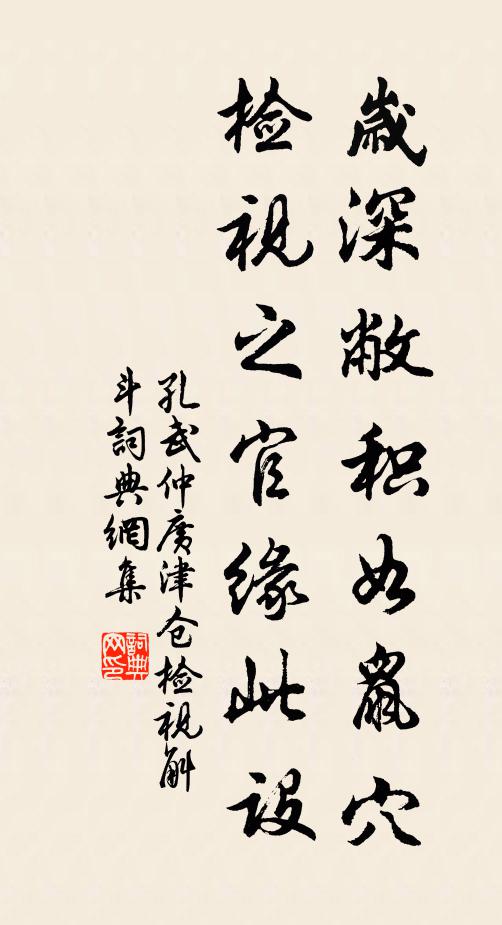 歲深敝积如鼠穴
检視之官缘此設
孔武仲廣津仓检視斛
斗詞典網集
詞典网印